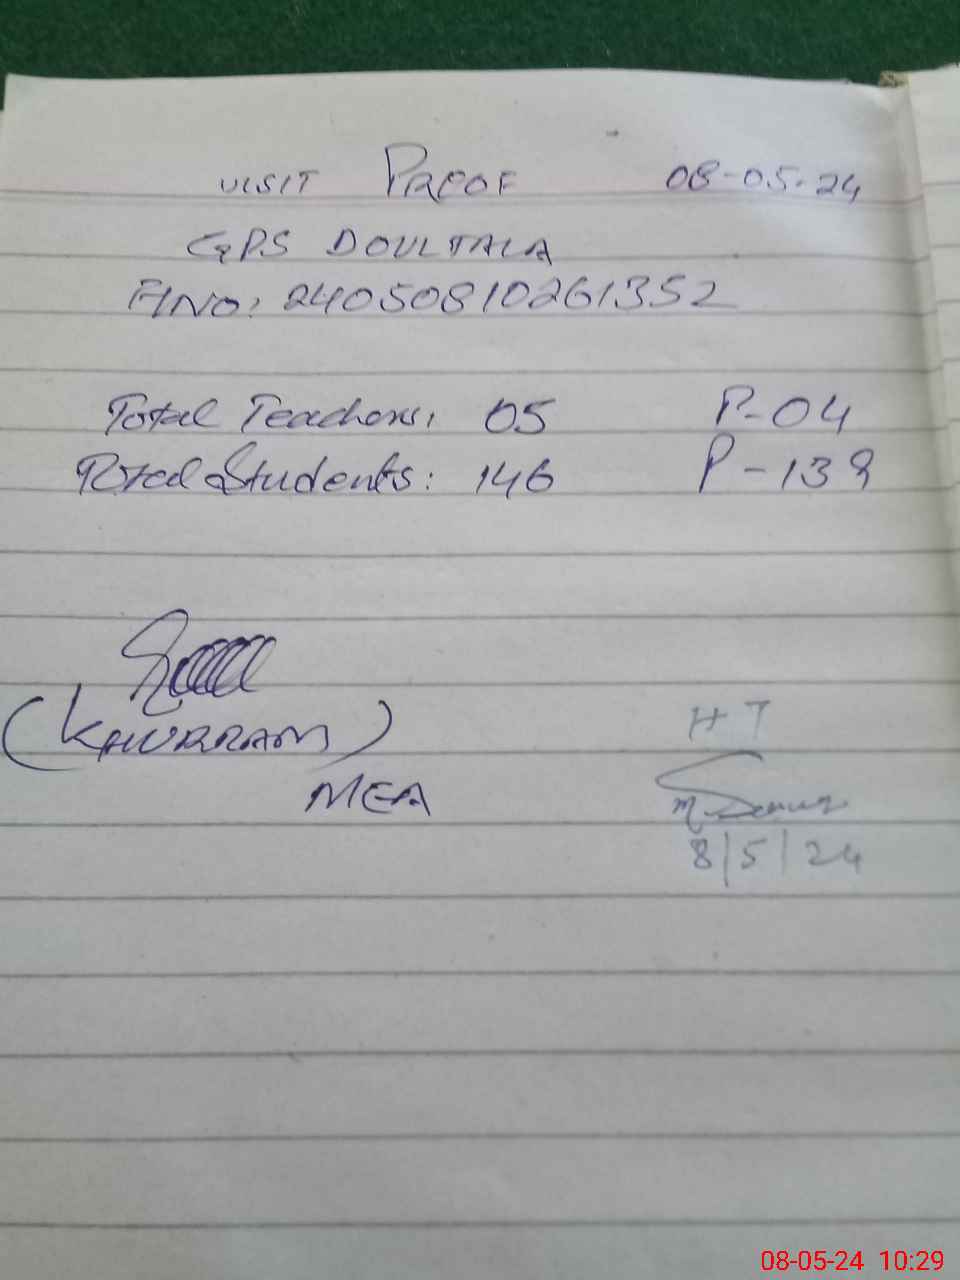 VISIT PROOF 08-05-24
GPS DOULTALA
FNO: 24050810261352
Total Teachers: 05 P-04
Total Students: 146 P-139
(KHURRAM)
MEA
HT
8/5/24
08-05-24 10:29